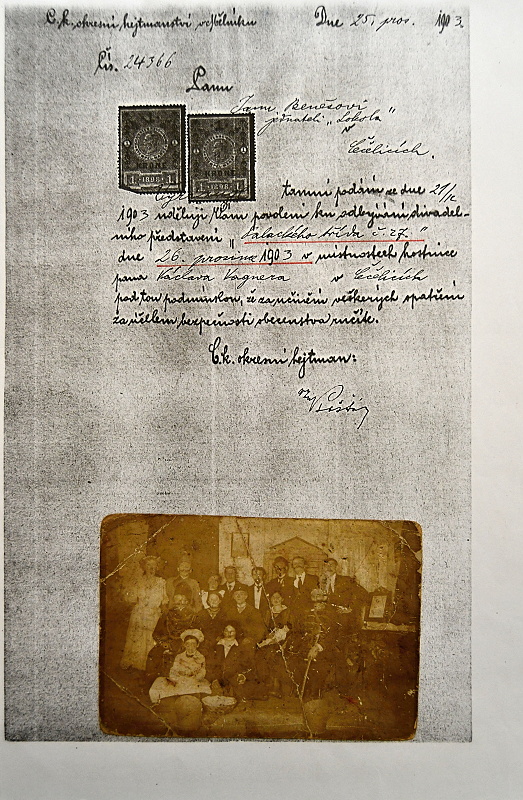 C. k. okresní hejtmanství v Mělníku Dne 25. pros. 1903.
Čís. 24366
Panu
Janu Benešovi
jednateli „Sokola"
v
Čečelicích.
KRONE
1 1898 1
KRONE
1 1898 1
tamní podání ze dne 21/12
1903 uděluji Vám povolení ku odbývání divadel-
ního představení „Palackého třída č. 27."
dne 26. prosince 1903 v místnostech hostince
pana Václava Vagnera v Čečelicích
pod tou podmínkou, že za učinění veškerých opatření
za účelem bezpečnosti obecenstva ručíte.
C. k. okresní hejtman: